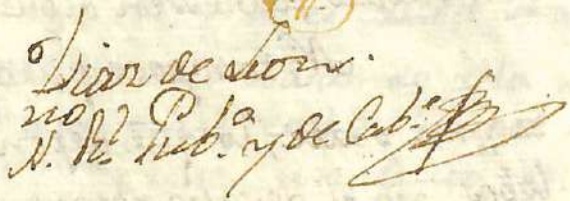 Diaz de Leon.
no
N. Rl. Pub.o y de Cab.o